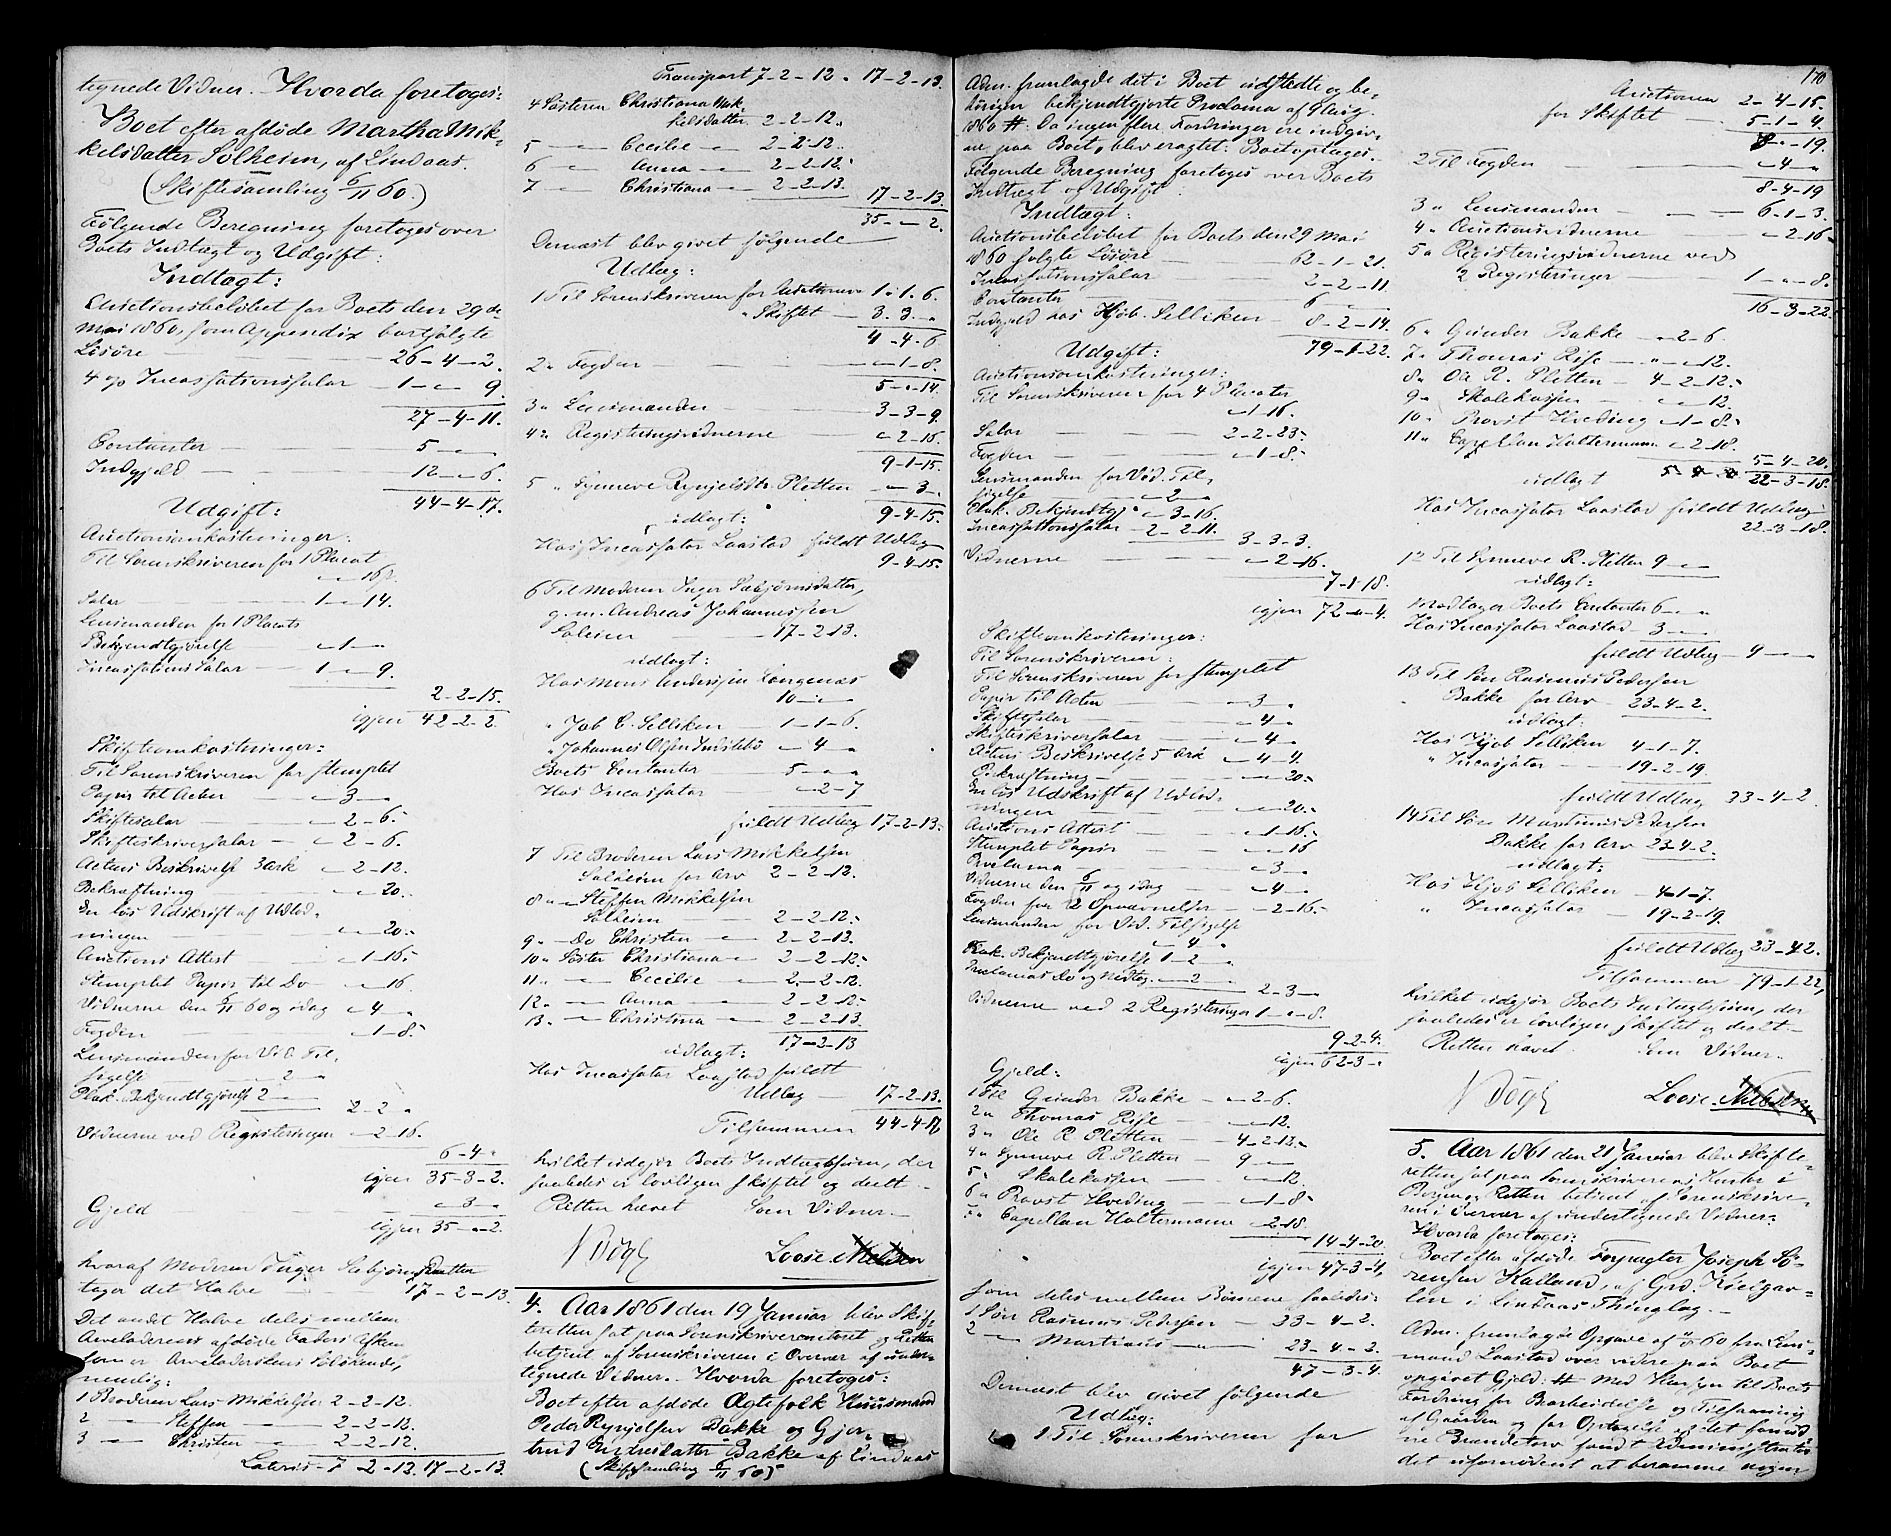 tegnede Vidner. Hvorda foretoges:
Boet efter afdøde Martha Mik-
kelsdatter Solheim, af Lindaas.
(Skiftesamling 6/11 60.)
Følgende Beregning foretoges over
Boets Indtægt og Udgift:
Indtægt:
Auctionsbeløbet for Boets den 29de
Mai 1860 som Appendix bortsolgte
Løsøre 26-4-2.
4 % Incassationssalær 1-"-9.
27-4-11.
Contanter 5-"-"
Indgjeld 12-"-6.
44-4-17.
Udgift:
Auctionsomkostninger:
Til Sorenskriveren for 1 Placat
"-"-16.
Salær 1-"-14.
Lensmanden for 1 Placats
Bekjendtgjørelse "-1-"
Incassations Salær 1-"-9.
2-2-15.
igjen 42-2-2.
Skifteomkostninger:
Til Sorenskriveren for stemplet
Papir til Acten "-3-"
Skiftesalær "-2-6.
Skifteskriversalær "-2-6.
Actens Beskrivelse 3 Ark "-2-12.
Bekræftning "-"-20.
En løs Udskrift af Udlod-
ningen "-"-20.
Auctions Attest "-1-16.
Stemplet Papir til Do "-"-16.
Vidnerne den 6/11 60 og idag "-4-"
Fogden "-1-8.
Lensmanden for Vid. Til-
sigelse "-2-"
Plak. Bekjendtgjørelse 2-"
2-2-"
Vidnerne ved Registeringen "-2-16.
6-4-"
igjen 35-3-2.
Gjeld "-3-"
igjen 35-"-2.
hvoraf Moderen Inger Sæbjørnsdatter
tager det Halve 17-2-13.
Det andet Halve deles mellem
Arveladerens afdøde Faders Afkom
som er Arveladerskens Sødskende,
nemlig:
1 Broderen Lars Mikkelsen 2-2-12.
2 " Steffen 2-2-12.
3 " Christen 2-2-12.
Lateris 7-2-12. 17-2-13.
Transport 7-2-12. 17-2-13.
4 Søsteren Christiana Mik-
kelsdatter 2-2-12.
5 " Cecilie 2-2-12.
6 " Anna 2-2-12.
7 " Christiana 2-2-13.
17-2-13.
35-"-2.
Dernæst blev givet følgende
Udlæg:
1 Til Sorenskriveren for Auctionen 1-1-6.
" Skiftet 3-3-"
4-4-6
2 " Fogden "-1-8.
5-"-14.
3 " Lensmanden 3-3-9.
4 " Registeringsvidnerne "-2-16.
9-1-15.
5 " Synneve Rynjelsdtr. Pletten "-3-"
9-4-15.
udlagt:
Hos Incassator Laastad fuldt Udlæg
9-4-15.
6 Til Moderen Inger Sæbjørnsdatter,
g. m. Andreas Johannessen
Solheim 17-2-13.
udlagt:
Hos Mons Andersen Langenæs
10-"-"
" Job C. Selliken 1-1-6.
" Johannes Olsen Indrebø "-4-"
Boets Contanter 5-"-"
Hos Incassator "-2-7
fuldt Udlæg 17-2-13.
7 Til Broderen Lars Mikkelsen
Solheim for Arv 2-2-12.
8 " Steffen Mikkelsen
Solheim 2-2-12.
9 " Do Christen 2-2-13.
10 " Søster Christiana 2-2-12.
11 " Cecilie 2-2-12.
12 " Anna 2-2-12.
13 " Christina 2-2-13.
17-2-13
udlagt:
Hos Incassator Laastad fuldt
Udlæg 17-2-13.
Tilsammen 44-4-17
hvilket udgjør Boets Indtægtssum, der
saaledes er lovligen skiftet og deelt.
Retten hævet. Som Vidner.
Loose. Nielsen
4. Aar 1861 den 19 Januar blev Skif-
teretten sat paa Sorenskrivercontoret og Retten
betjent af Sorenskriveren i Overvær af under-
tegnede Vidner. Hvorda foretoges:
Boet efter afdøde Ægtefolk Huusmand
Peder Rynjelsen Bakke og Gjer-
trud Endresdatter Bakke af Lindaas
(Skiftesamling 6/11 60)
170
Adm. fremlagde det i Boet udstedte og be-
hørigen bekjendtgjorte Proclama af
1860 #: Da ingen flere Fordringer ere indgiv-
ne paa Boet, blev eragtet: Boet optages.
Følgende Beregning foretoges over Boets
Indtægt og Udgift:
Indtægt:
Auctionsbeløbet for Boets den 29 Mai
1860 solgte Løsøre 62-1-21.
Incassationssalær 2-2-11.
Contanter 6-"-"
Indgjeld hos Hjøb. Selliken 8-2-14.
79-1-22.
Udgift:
Auctionsomkostninger:
Til Sorenskriveren for 4 Placater
"-1-16.
Salær 2-2-23.
Fogden "-1-8.
Lensmanden for Vid. Til-
sigelse "-2-"
Plak. Bekjendtgj. "-3-16.
Incassationssalær 2-2-11.
3-3-3.
Vidnerne "-2-16.
7-1-18.
igjen 72-"-4.
Skifteomkostninger:
Til Sorenskriveren:
Til Sorenskriveren for stemplet
Papir til Acten "-3-"
Skiftesalær "-4-"
Skifteskriversalær "-4-"
Actens Beskrivelse 5 Ark "-4-4.
Bekræftning "-"-20.
En løs Udskrift af Udlod-
ningen "-"-20.
Auctions Attest "-1-16.
Stemplet Papir "-"-16
Proclama "-3-"
Vidnerne den 6/11 og idag "-4-"
Fogden for 2 Opnævnelser "-2-16.
Lensmanden for Vid. Tilsigelse
"-4-"
Plak. Bekjendtgjørelse 1-2-"
Proclamas Do og Vedtag. "-2-"
2-3-"
Vidnerne ved 2 Registeringer 1-"-8.
9-2-4.
igjen 62-3-"
Gjeld:
1 Til Gunder Bakke "-2-6.
2 " Thomas Risse "-"-12.
3 " Ole R. Pletten 4-2-12.
4 " Synneve R. Pletten 9-"-"
5 " Skolekassen "-"-12.
6 " Provst Hveding "-1-8.
7 " Capellan Holtermann "-2-18.
14-4-20.
igjen 47-3-4,
som deles mellem Børnene saaledes:
1 Søn Rasmus Pedersen 23-4-2.
2 " Martinus 23-4-2.
47-3-4.
Dernæst blev givet følgende
Udlæg:
1 Til Sorenskriveren for
Auctionen 2-4-15.
for Skiftet 5-1-4.
8-"-19.
2 Til Fogden "-4-"
8-4-19
3 " Lensmanden 6-1-3.
4 " Auctionsvidnerne "-2-16.
5 " Registeringsvidnerne ved
2 Registeringer 1-"-8.
16-3-22.
6 " Gunder Bakke "-2-6.
7 " Thomas Risse "-"-12.
8 " Ole R. Pletten 4-2-12.
9 " Skolekassen "-"-12.
10 " Provst Hveding "-1-8.
11 " Capellan Holtermann "-2-18.
5-4-20.
udlagt 22-3-18.
Hos Incassator Laastad fuldt Udlæg
22-3-18.
12 Til Synneve R. Pletten 9-"-"
udlagt:
Modtager Boets Contanter 6-"-"
Hos Incassator Laastad 3-"-"
fuldt Udlæg 9-"-"
13 Til Søn Rasmus Pedersen
Bakke for Arv 23-4-2.
udlagt:
Hos Hjøb Selliken 4-1-7.
" Incassator 19-2-19.
fuldt Udlæg 23-4-2.
14 Til Søn Martinus Pedersen
Bakke for Arv 23-4-2.
udlagt:
Hos Hjøb Selliken 4-1-7.
" Incassator 19-2-19.
fuldt Udlæg 23-4-2.
Tilsammen 79-1-22,
hvilket udgjør Boets Indtægtssum, der
saaledes er lovligen skiftet og deelt.
Retten hævet. Som Vidner.
Loose. Nielsen
5. Aar 1861 den 21 Januar blev Skifte-
retten sat paa Sorenskriverens Kontor i
Bergen og Retten betjent af Sorenskrive-
ren i Overvær af undertegnede Vidner.
Hvorda foretoges:
Boet efter afdøde Forpagter Joseph Sø-
rensen Kalland, af Grd. Kielgav-
len i Lindaas Thinglag.
Adm. fremlagde Opgave af 60 fra Lens-
mand Laastad over videre paa Boet
opgivet Gjeld: # Med Hensyn til Boets
Fordring for Bearbeidelse og Tilsaaning
af Gaarden og for Optagelse af det fornød-
ne Brændetorv fandt Administrator
det ufornødent at beramme nogen